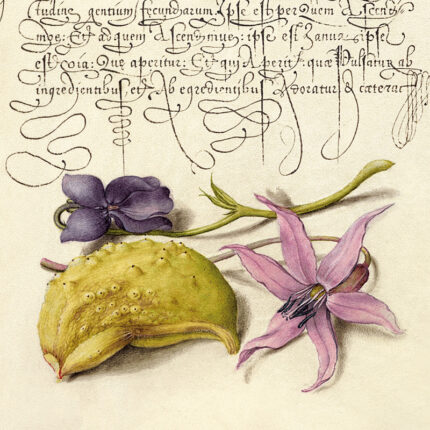 tudine, gentium fecundarum Ipse est per quem Ascendi-
mus: Et ad quem Ascendimus: ipse est Ianua: ipse
est Que aperitur: Et qui Aperit: quæ Pulsatur ab
ingredientibus, et Ab egredientibus Adoratur &